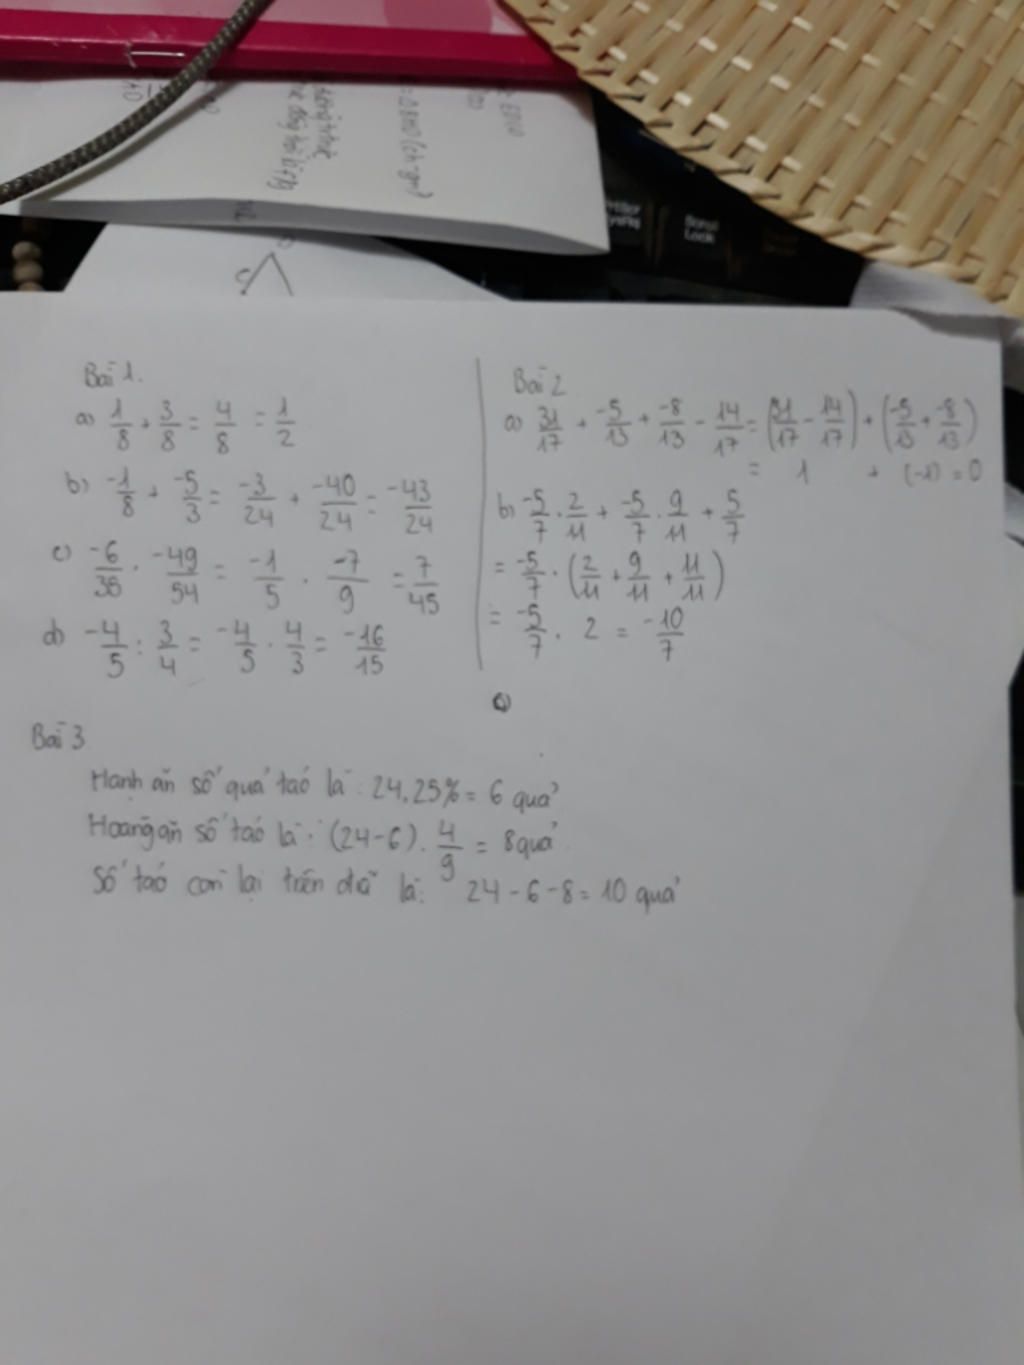 Bài 1.
a) 1/8 + 3/8 = 4/8 = 1/2
b) -1/8 + -5/3 = -3/24 + -40/24 = -43/24
c) -6/35 . -49/54 = -1/5 . -7/9 = 7/45
d) -4/5 : 3/4 = -4/5 . 4/3 = -16/15
Bài 2
a) 31/17 + -5/13 + -8/13 - 14/17 = (31/17 - 14/17) + (-5/13 + -8/13)
= 1 + (-1) = 0
b) -5/7 . 2/11 + -5/7 . 9/11 + 5/7
= -5/7 . (2/11 + 9/11 + 11/11)
= -5/7 . 2 = -10/7
Bài 3
Hạnh ăn số quả táo là : 24.25% = 6 quả
Hoàng ăn số táo là : (24-6) . 4/9 = 8 quả
Số táo còn lại trên đĩa là : 24 - 6 - 8 = 10 quả
Scroll
Lock